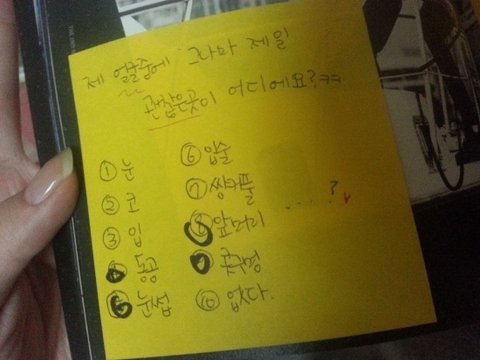 제 얼굴중에 그나마 제일
괜찮은곳이 어디에요?ㅋㅋ
① 눈
② 코
③ 입
④ 동공
⑤ 눈썹
⑥ 입술
⑦ 쌍커풀
⑧ 앞머리
⑨ 콧구멍
⑩ 없다.
......?